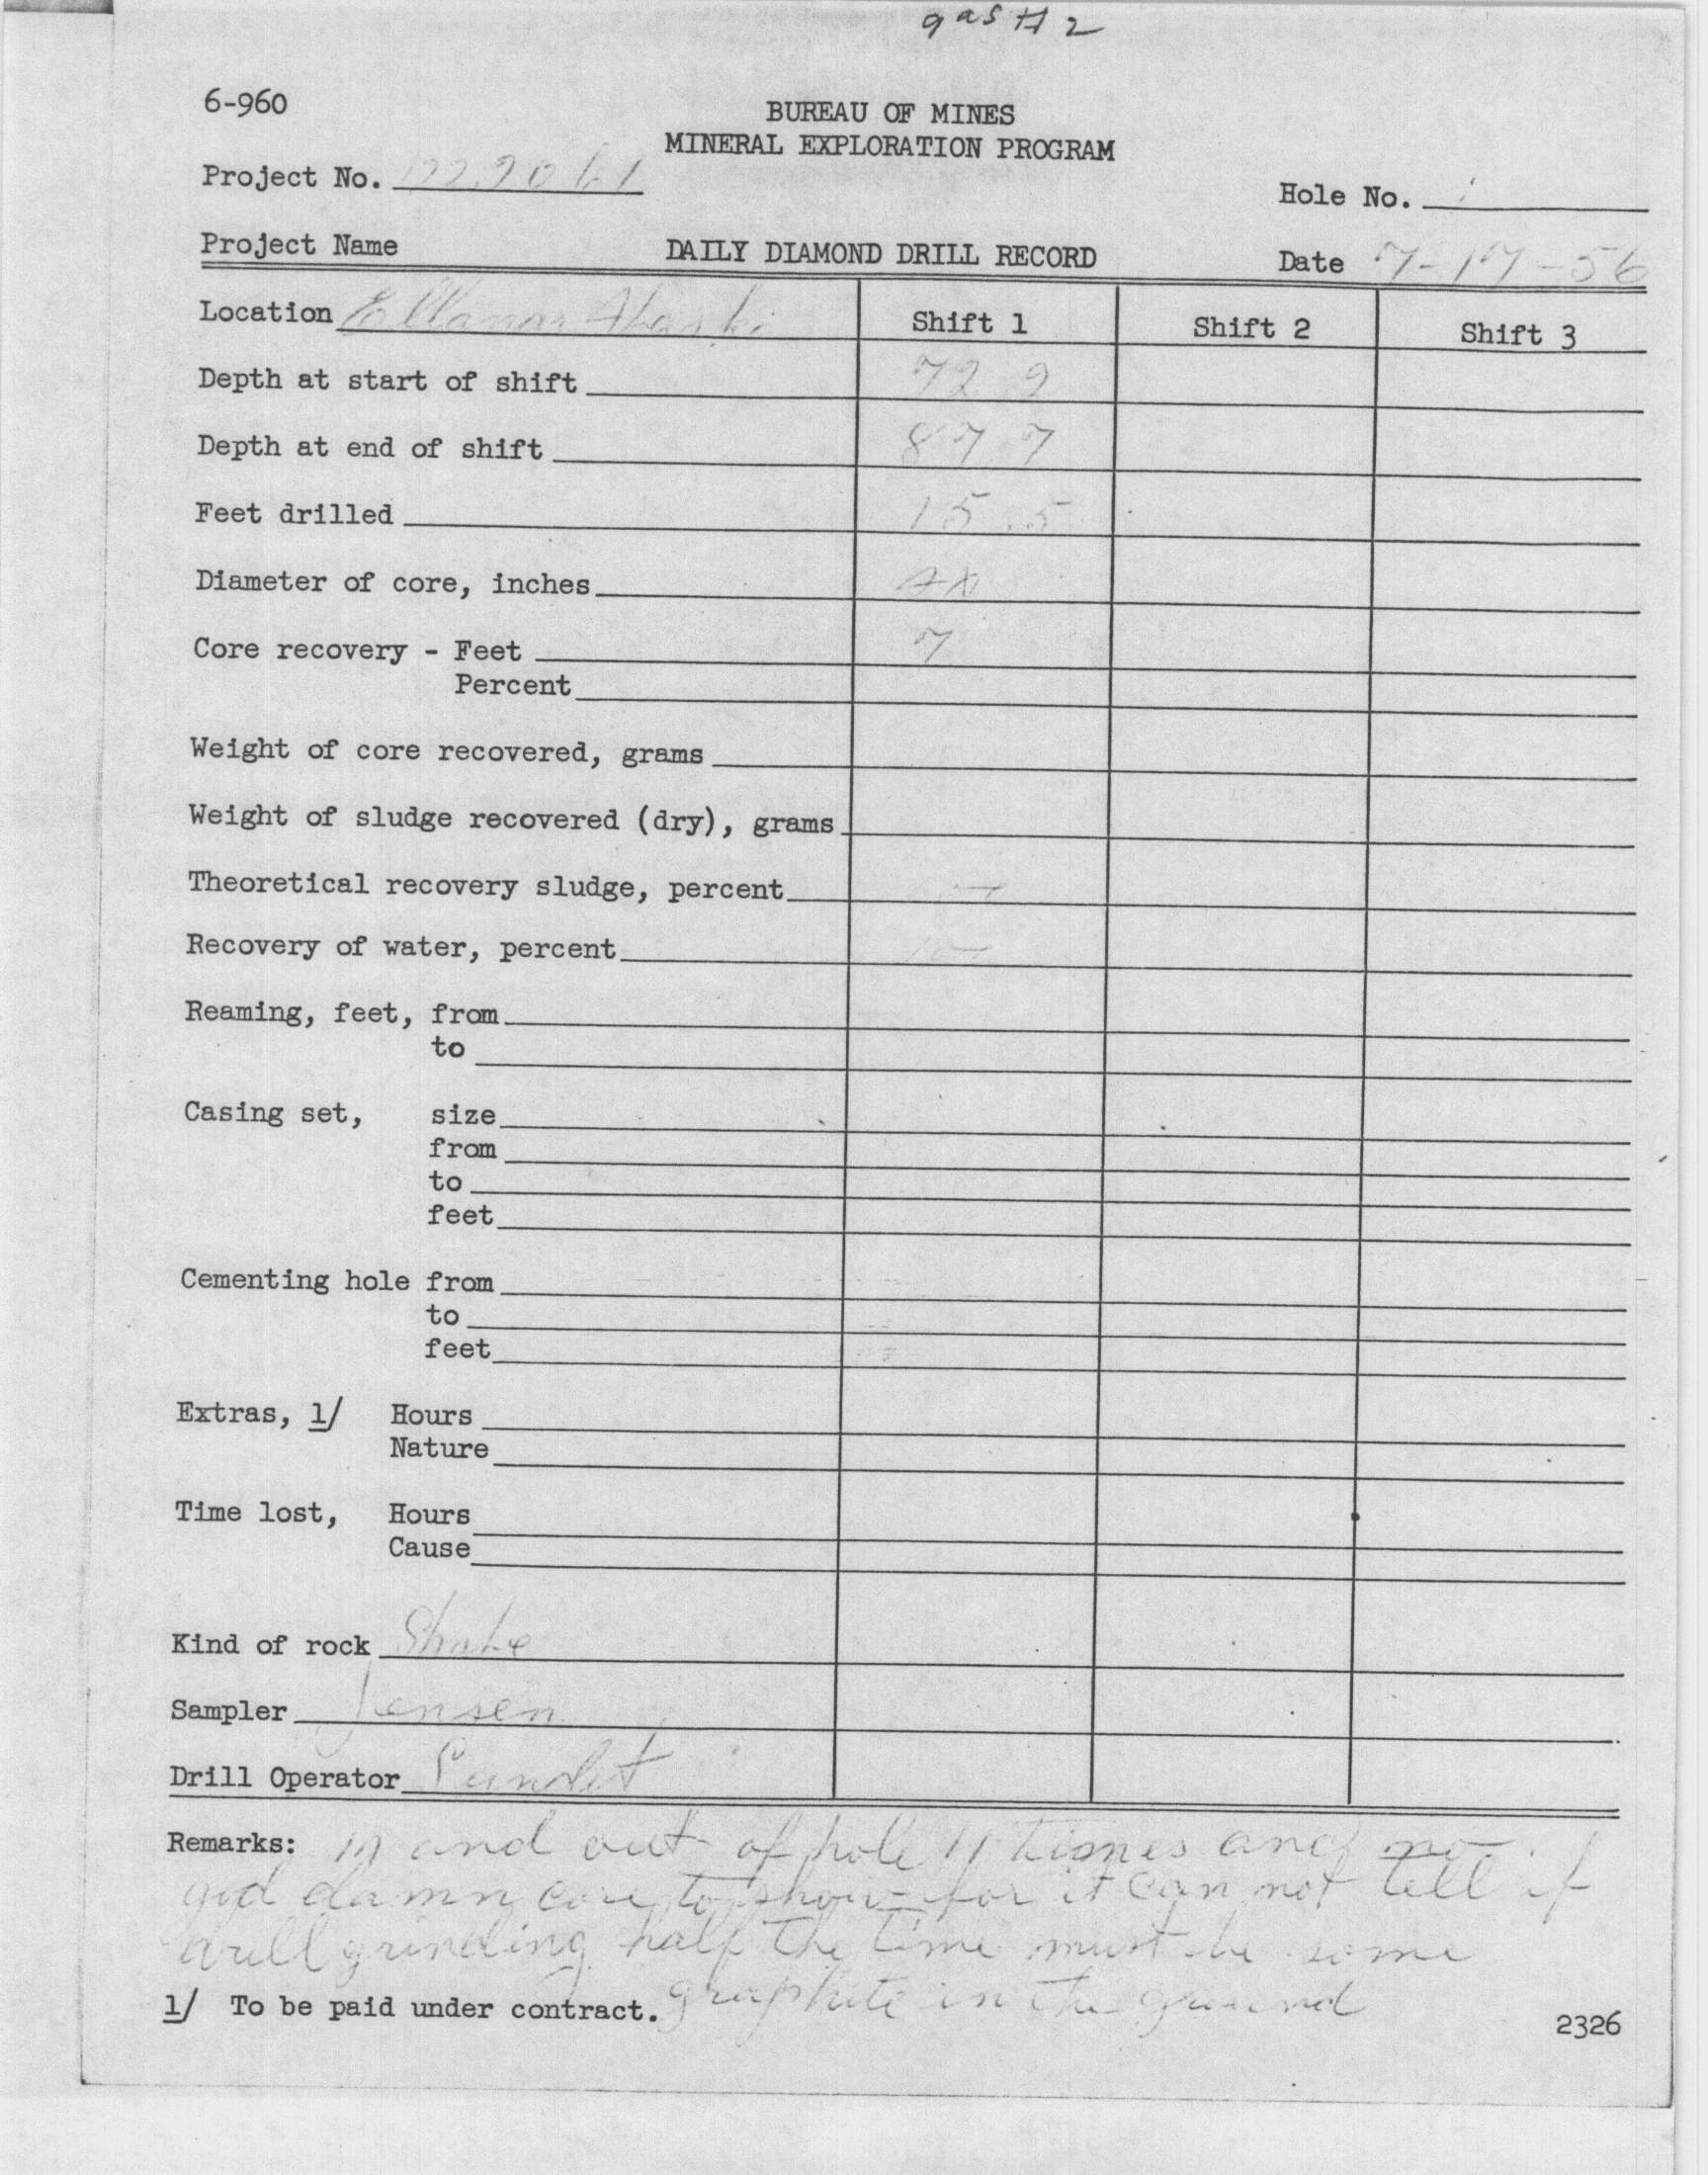 gas # 2
6-960
BUREAU OF MINES
MINERAL EXPLORATION PROGRAM
Project No.
Hole No.
Project Name DAILY DIAMOND DRILL RECORD Date 7-17-56
Location Shift 1 Shift 2 Shift 3
Depth at start of shift 72 2
Depth at end of shift 87 7
Feet drilled 15.5
Diameter of core, inches AX
Core recovery - Feet 7
Percent
Weight of core recovered, grams
Weight of sludge recovered (dry), grams
Theoretical recovery sludge, percent
Recovery of water, percent
Reaming, feet, from
to
Casing set, size
from
to
feet
Cementing hole from
to
feet
Extras, 1/ Hours
Nature
Time lost, Hours
Cause
Kind of rock
Sampler Jensen
Drill Operator
Remarks: in and out of hole 11 times and no
god damn core to show for it can not tell if
drill grinding half the time must be some
graphite in the ground
1/ To be paid under contract.
2326